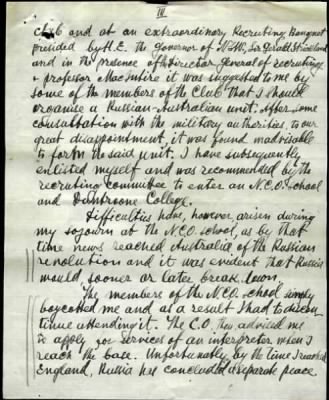 IV
club and at an extraordinary Recruiting Banquet
presided by H.E. the Governor of N.S.W., Sir Gerald Strickland
and in the presence of the Director General of recruiting
& professor MacIntire it was suggested to me by
some of the members of the Club that I should
organise a Russian-Australian unit. After some
consultation with the military authorities, to our
great disappointment, it was found inadvisable
to form the said unit. I have subsequently
enlisted myself and was recommended by the
recruiting committee to enter an N.C.O. school
and Duntroone College.
Difficulties have, however, arisen during
my sojourn at the N.C.O. school, as by that
time news reached Australia of the Russian
revolution and it was evident that Russia
would, sooner or later break down.
The members of the N.C.O. school simply
boycotted me and as a result I had to discon-
tinue attending it. The C.O. then advised me
to apply for services of an interpreter when I
reach the base. Unfortunately, by the time I reached
England, Russia has concluded a separate peace